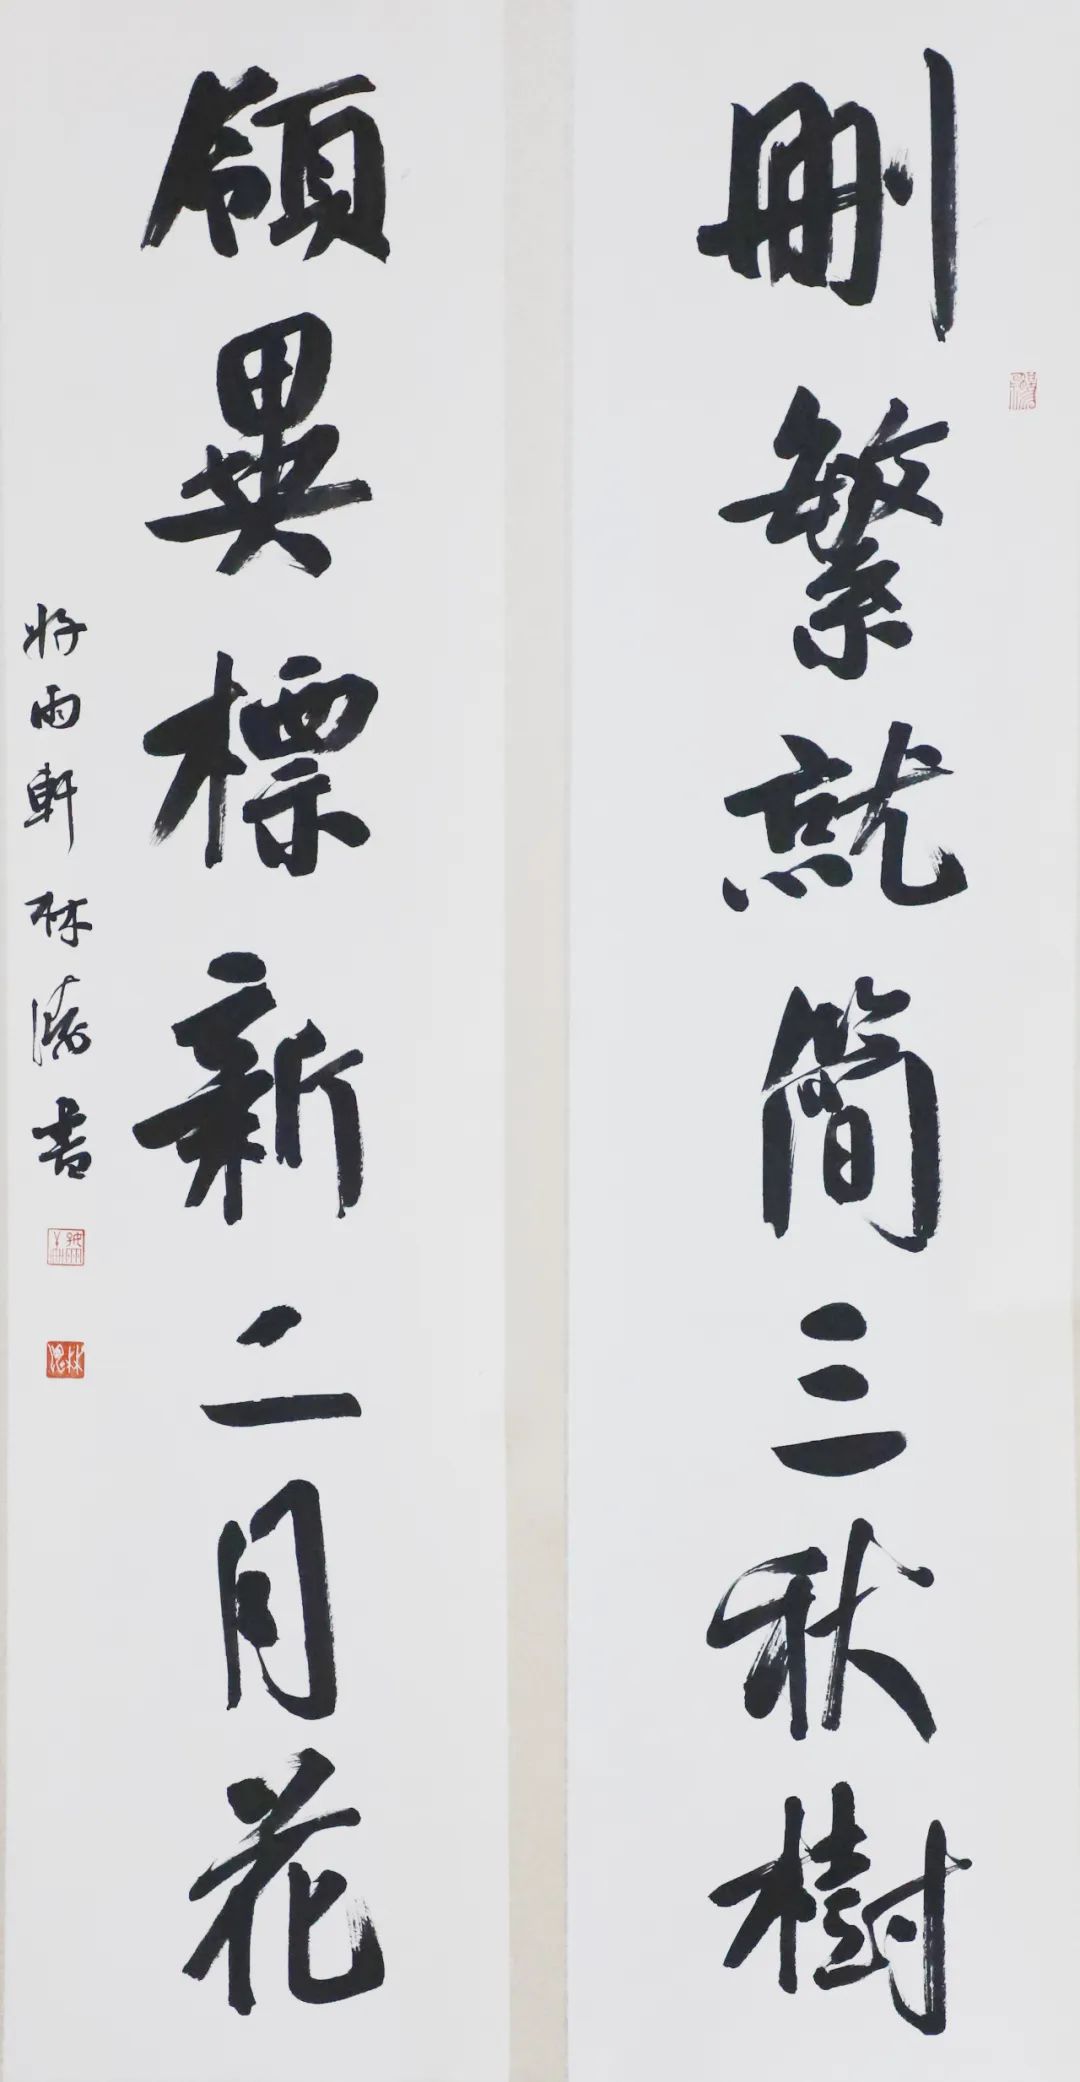 刪繁就簡三秋樹
領異標新二月花
將雨軒林濤書